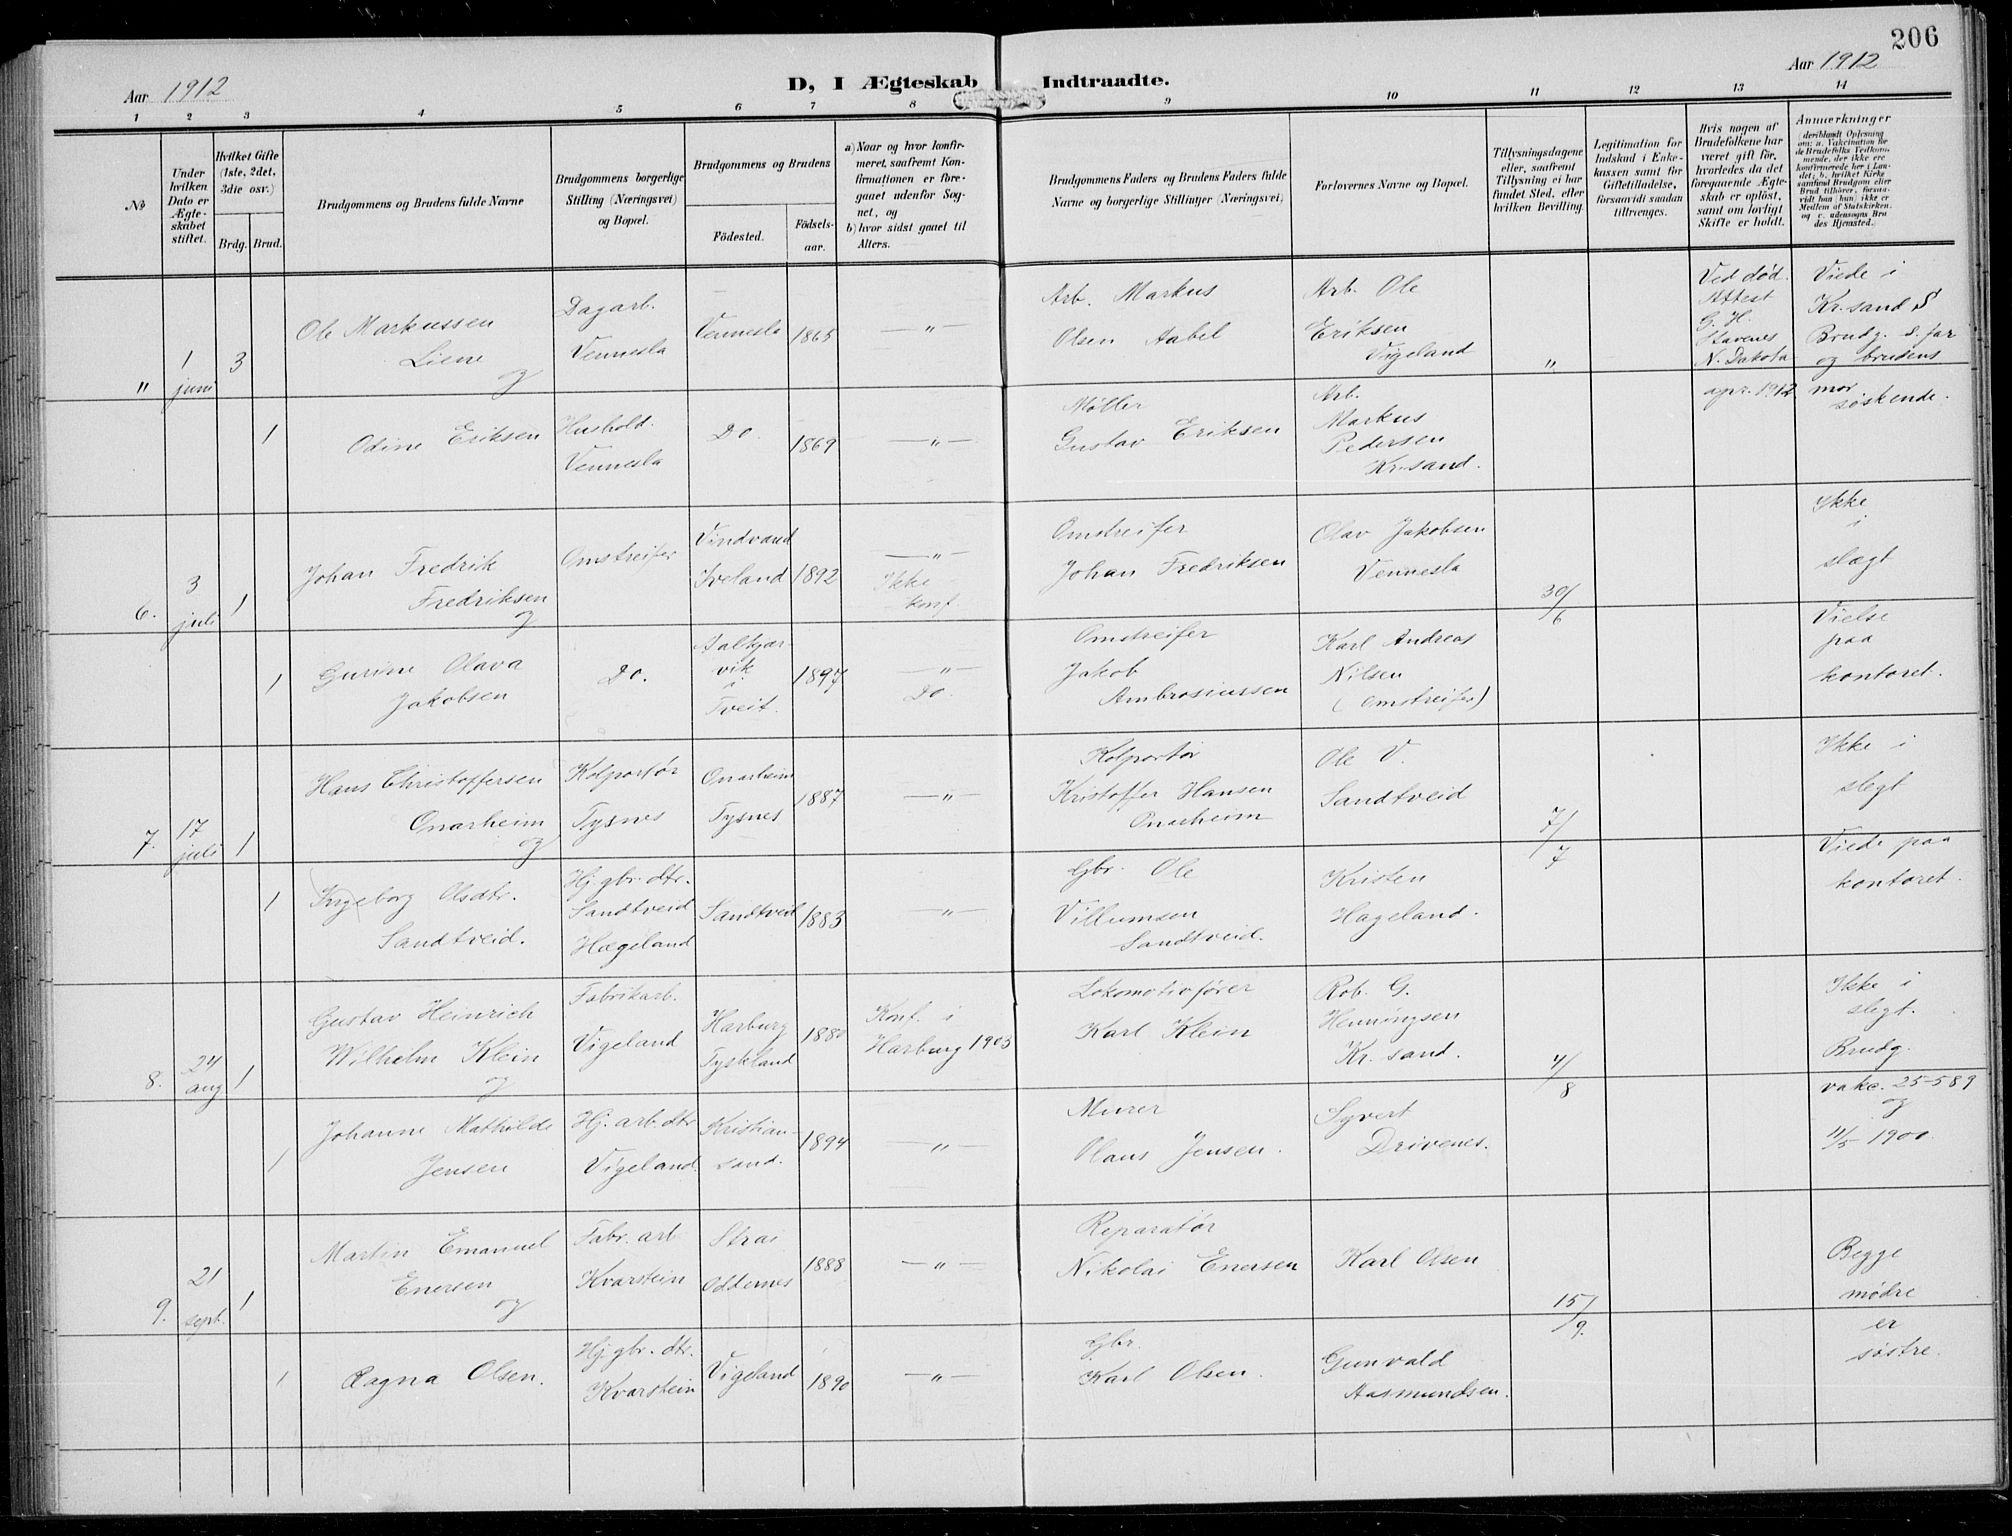 206
Aar 1912
D, I Ægteskab Indtraadte.
Aar 1912
1 2 3 4 5 6 7 8 9 10 11 12 13 14
№
Under hvilken Dato er Ægteskabet stiftet.
Hvilket Gifte (1ste, 2det, 3die osv.)
Brdg. Brud.
Brudgommens og Brudens fulde Navne
Brudgommens borgerlige Stilling (Næringsvei) og Bopæl.
Brudgommens og Brudens
Fødested.
Fødselsaar.
a) Naar og hvor konfirmeret, saafremt Konfirmationen er foregaaet udenfor Sognet, og
b) hvor sidst gaaet til Alters.
Brudgommens Faders og Brudens Faders fulde Navne og borgerlige Stillinger (Næringsvei)
Forlovernes Navne og Bopæl.
Tillysningsdagene eller, saafremt Tillysning ei har fundet Sted, efter hvilken Bevilling.
Legitimation for Indskud i Enkekassen samt for Giftetilladelse, forsaavidt saadan tiltrænges.
Hvis nogen af Brudefolkene har været gift før, hvorledes da det foregaaende Ægteskab er opløst, samt om lovligt Skifte er holdt.
Anmærkninger
(deriblandt Oplysning om: a. Vakcination for de Brudefolks Vedkommende, der ikke ere konfirmerede her i Landet; b. hvilket Kirkesamfund Brudgom eller Brud tilhører, forsaavidt han (hun) ikke er Medlem af Statskirken, og c. udensogns Brudes Hjemsted.
" 1 juni 3
Ole Markussen
Liene
og
Dagarb.
Vennesla
Vennesla 1865
— " —
Arb. Markus
Olsen Aabel
Arb. Ole
Eriksen
Vigeland
"
Ved død.
Attest
G. H.
Stavenes
N. Dakota
apr. 1912
Viede i
Kr.sand S
Brudg. s. far
og brudens
mor
søskende.
1
Odine Eriksen
Hushold.
Vennesla
Do. 1869
— " —
Møller
Gustav Eriksen
Arb.
Markus
Pedersen
Kr.sand.
6. 3 juli 1
Johan Fredrik
Fredriksen
og
Omstreifer
Vindvand
Iveland 1892
— " —
Ikke
konf.
Omstreifer
Johan Fredriksen
Olav Jakobsen
Vennesla
30/6
Ikke
i
slegt
Vielse
paa
kontoret.
1
Gurine Olava
Jakobsen
Do.
Aalkjærvik
i
Tveit. 1897
— " —
Do.
Omstreifer
Jakob
Ambrosiussen
Karl Andreas
Nilsen
(Omstreifer)
7. 17 juli 1
Hans Christoffersen
Onarheim
og
Kolportør
Tysnes
Onarheim
Tysnes 1887
— " —
Kolportør
Kristoffer Hansen
Onarheim
Ole V.
Sandtveid
7/7
Ikke i
slegt
Viede paa
kontoret.
1
Ingeborg Olsdtr.
Sandtveid.
Hj. gbr. dtr.
Sandtveid
Hægeland
Sandtveid 1883
— " —
Gbr. Ole
Villumsen
Sandtveid.
Kristen
Hageland.
8. 24 aug. 1
Gustav Heinrich
Wilhelm Klein
og
Fabrikarb.
Vigeland
Harburg
Tyskland 1888
Konf. i
Harburg 1903
Lokomotivfører
Karl Klein
Rob. G.
Henningsen
Kr. sand.
4/8
Ikke i
slegt.
Brudg.
vakc. 25-589
og
11/5 1900.
1
Johanne Mathilde
Jensen
Hj. arb. dtr.
Vigeland
Kristiansand. 1894
— " —
Murer
Olaus Jensen.
Syvert
Drivenes.
9. 21 sept. 1
Martin Emanuel
Enersen
og
Fabr. arb
Kvarstein
Strai
Oddernes 1888
— " —
Reparatør
Nikolai Enersen
Karl Olsen
15/9.
Begge
mødre
er
søstre.
1
Ragna Olsen.
Hj. gbr. dtr.
Kvarstein
Vigeland 1890
— " —
Gbr.
Karl Olsen.
Gunvald
Aasmundsen.